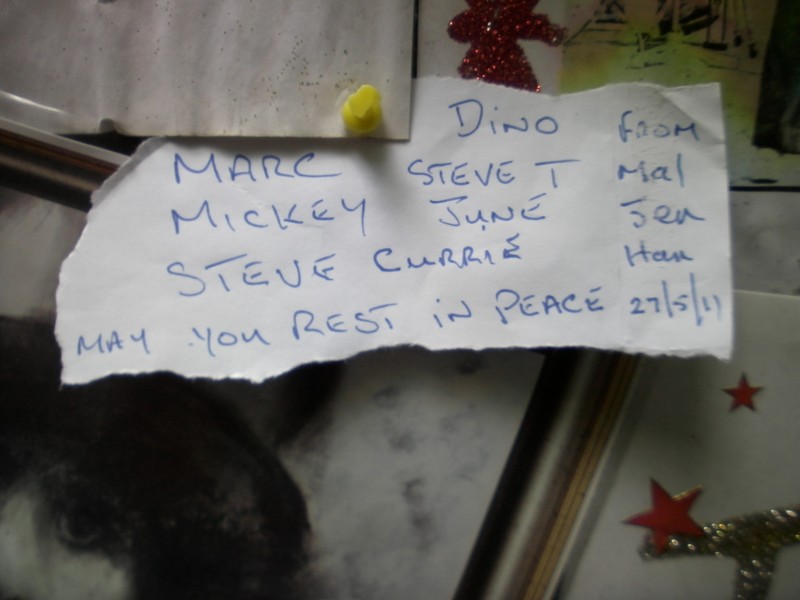 DINO FROM
MARC STEVE T Mal
MICKEY JUNE Jen
STEVE CURRIE Han
MAY YOU REST IN PEACE 27/5/11